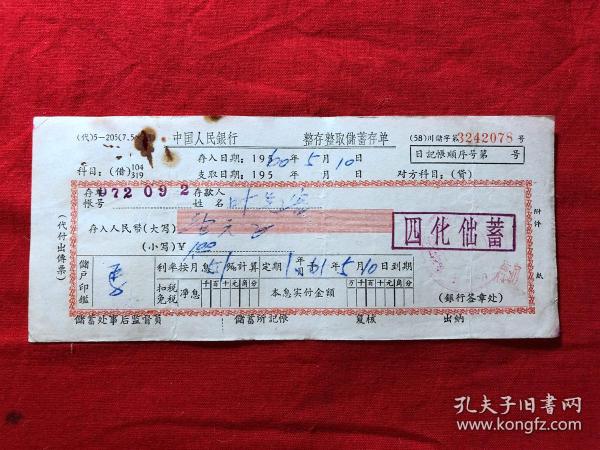 (代)5-205(7.5
中国人民銀行 整存整取儲蓄存单 (58)川儲字第3242078号
存入日期：1960年5月10日 日記帳順序号第 号
科目：(借)104 319 支取日期：195 年 月 日 对方科目：(貸)
存单 972092 存款人
帳号 姓名
四化儲蓄
存入人民幣(大写)壹元
(小写)¥1.00
(代付出傳票)
附件 紙
儲戶印鑑
利率按月息5.1‰計算定期1年 61年5月10日到期
扣税 免税 净息 千百十元角分 本息实付金额 万千百十元角分 (銀行签章处)
儲蓄处事后监督員 儲蓄所記帳 复核 出納
孔夫子旧书网
www.kongfz.com